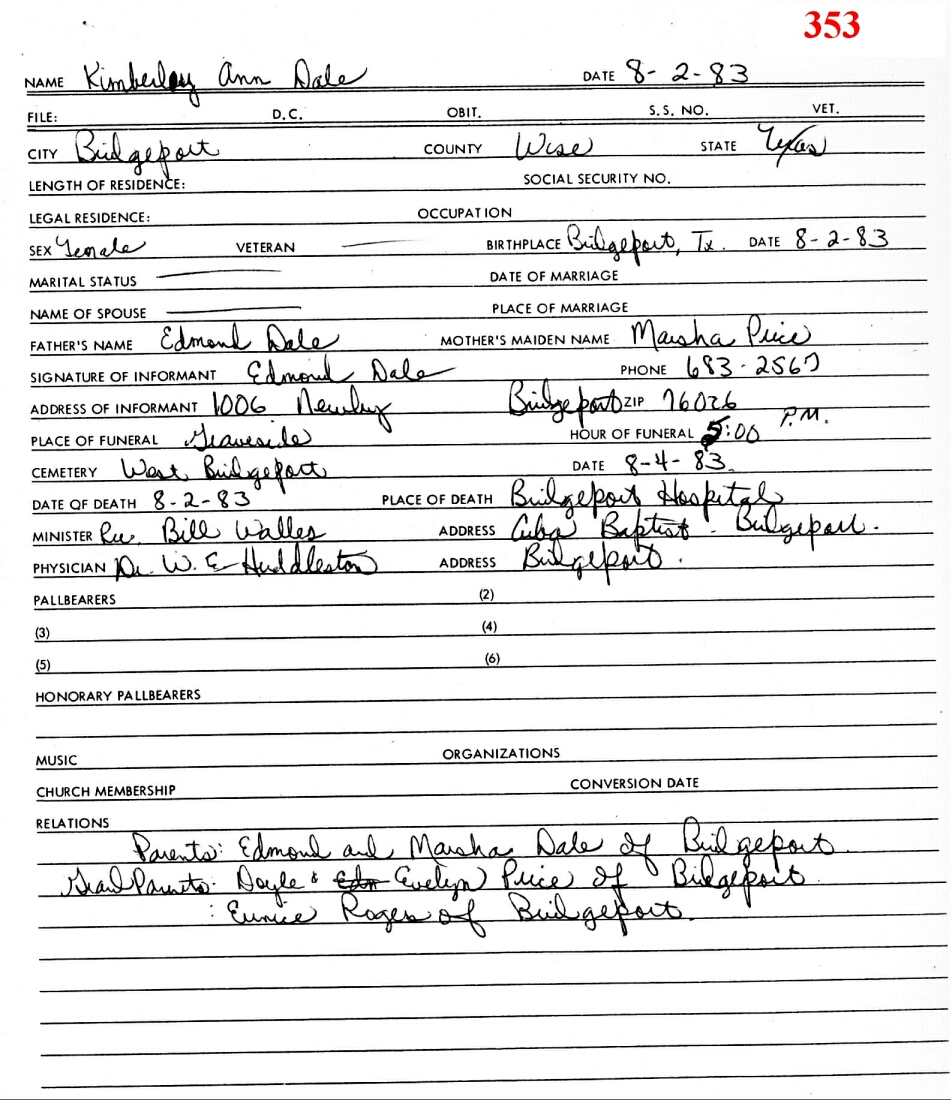 353
NAME Kimberley Ann Dale DATE 8-2-83
FILE: D.C. OBIT. S.S. NO. VET.
CITY Bridgeport COUNTY Wise STATE Texas
LENGTH OF RESIDENCE: SOCIAL SECURITY NO.
LEGAL RESIDENCE: OCCUPATION
SEX Female VETERAN — BIRTHPLACE Bridgeport, Tx. DATE 8-2-83
MARITAL STATUS — DATE OF MARRIAGE
NAME OF SPOUSE — PLACE OF MARRIAGE
FATHER'S NAME Edmond Dale MOTHER'S MAIDEN NAME Marsha Price
SIGNATURE OF INFORMANT Edmond Dale PHONE 683-2567
ADDRESS OF INFORMANT 1006 Newby Bridgeport ZIP 76026
PLACE OF FUNERAL Graveside HOUR OF FUNERAL 5:00 P.M.
CEMETERY West Bridgeport DATE 8-4-83
DATE OF DEATH 8-2-83 PLACE OF DEATH Bridgeport Hospital
MINISTER Rev. Bill Walles ADDRESS Cuba Baptist - Bridgeport.
PHYSICIAN Dr. W. E. Huddleston ADDRESS Bridgeport.
PALLBEARERS (2)
(3) (4)
(5) (6)
HONORARY PALLBEARERS
MUSIC ORGANIZATIONS
CHURCH MEMBERSHIP CONVERSION DATE
RELATIONS
Parents: Edmond and Marsha Dale of Bridgeport.
GrandParents: Doyle & Edn Evelyn Price of Bridgeport.
: Eunice Rogers of Bridgeport.